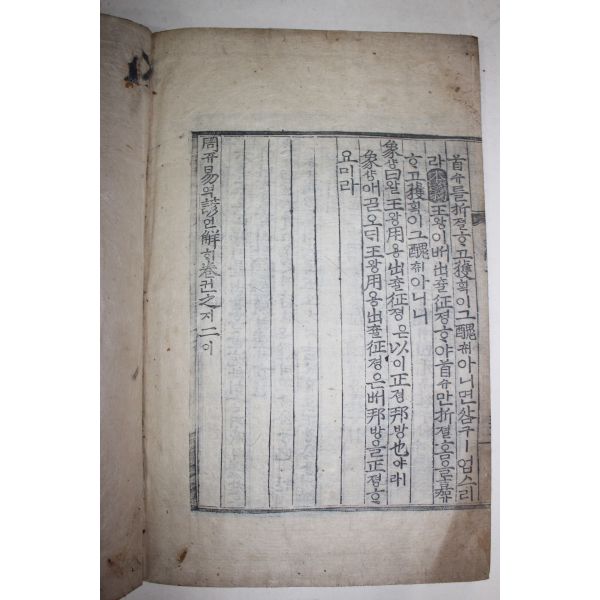 首슈를折졀ᄒᆞ고獲획이그醜취아니면삼구ㅣ업스리
라 王왕이ᄡᅥ出츌征졍ᄒᆞ야首슈만折졀홈을
ᄒᆞ고獲획이그醜취아니니
象샹曰왈王왕用용出츌征졍은以이正졍邦방也야ㅣ라
象샹애ᄀᆞᆯ오ᄃᆡ王왕用용出츌征졍은ᄡᅥ邦방을正졍ᄒᆞ
요미라
周쥬易역諺언解ᄒᆡ卷권之지二이